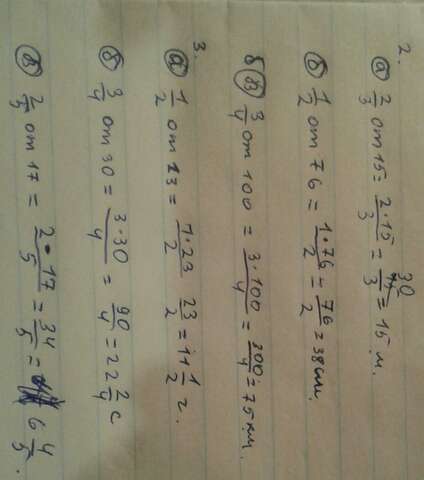 2.
а) 2/3 от 15 = 2·15/3 = 30/3 = 15 м.
б) 1/2 от 76 = 1·76/2 = 76/2 = 38 см.
в) 3/4 от 100 = 3·100/4 = 300/4 = 75 км.
3.
а) 1/2 от 23 = 1·23/2 23/2 = 11 1/2 г.
б) 3/4 от 30 = 3·30/4 = 90/4 = 22 2/4 с
в) 2/5 от 17 = 2·17/5 = 34/5 = 6 4/5.